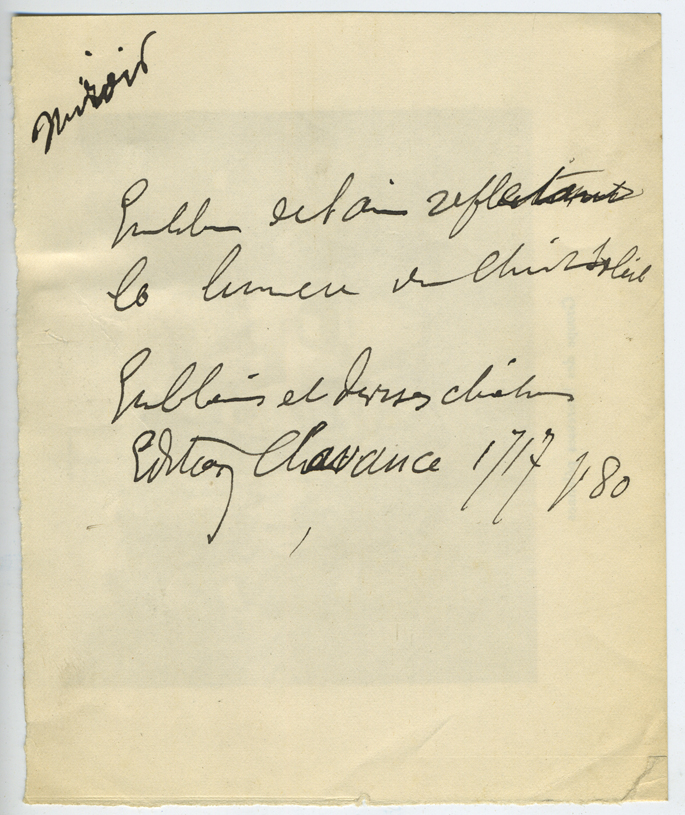 miroir
Emblème de l'âme reflétant
la lumière du Christ Soleil
Emblèmes et devises chrétiennes
Edition Chavance 1717 p 80